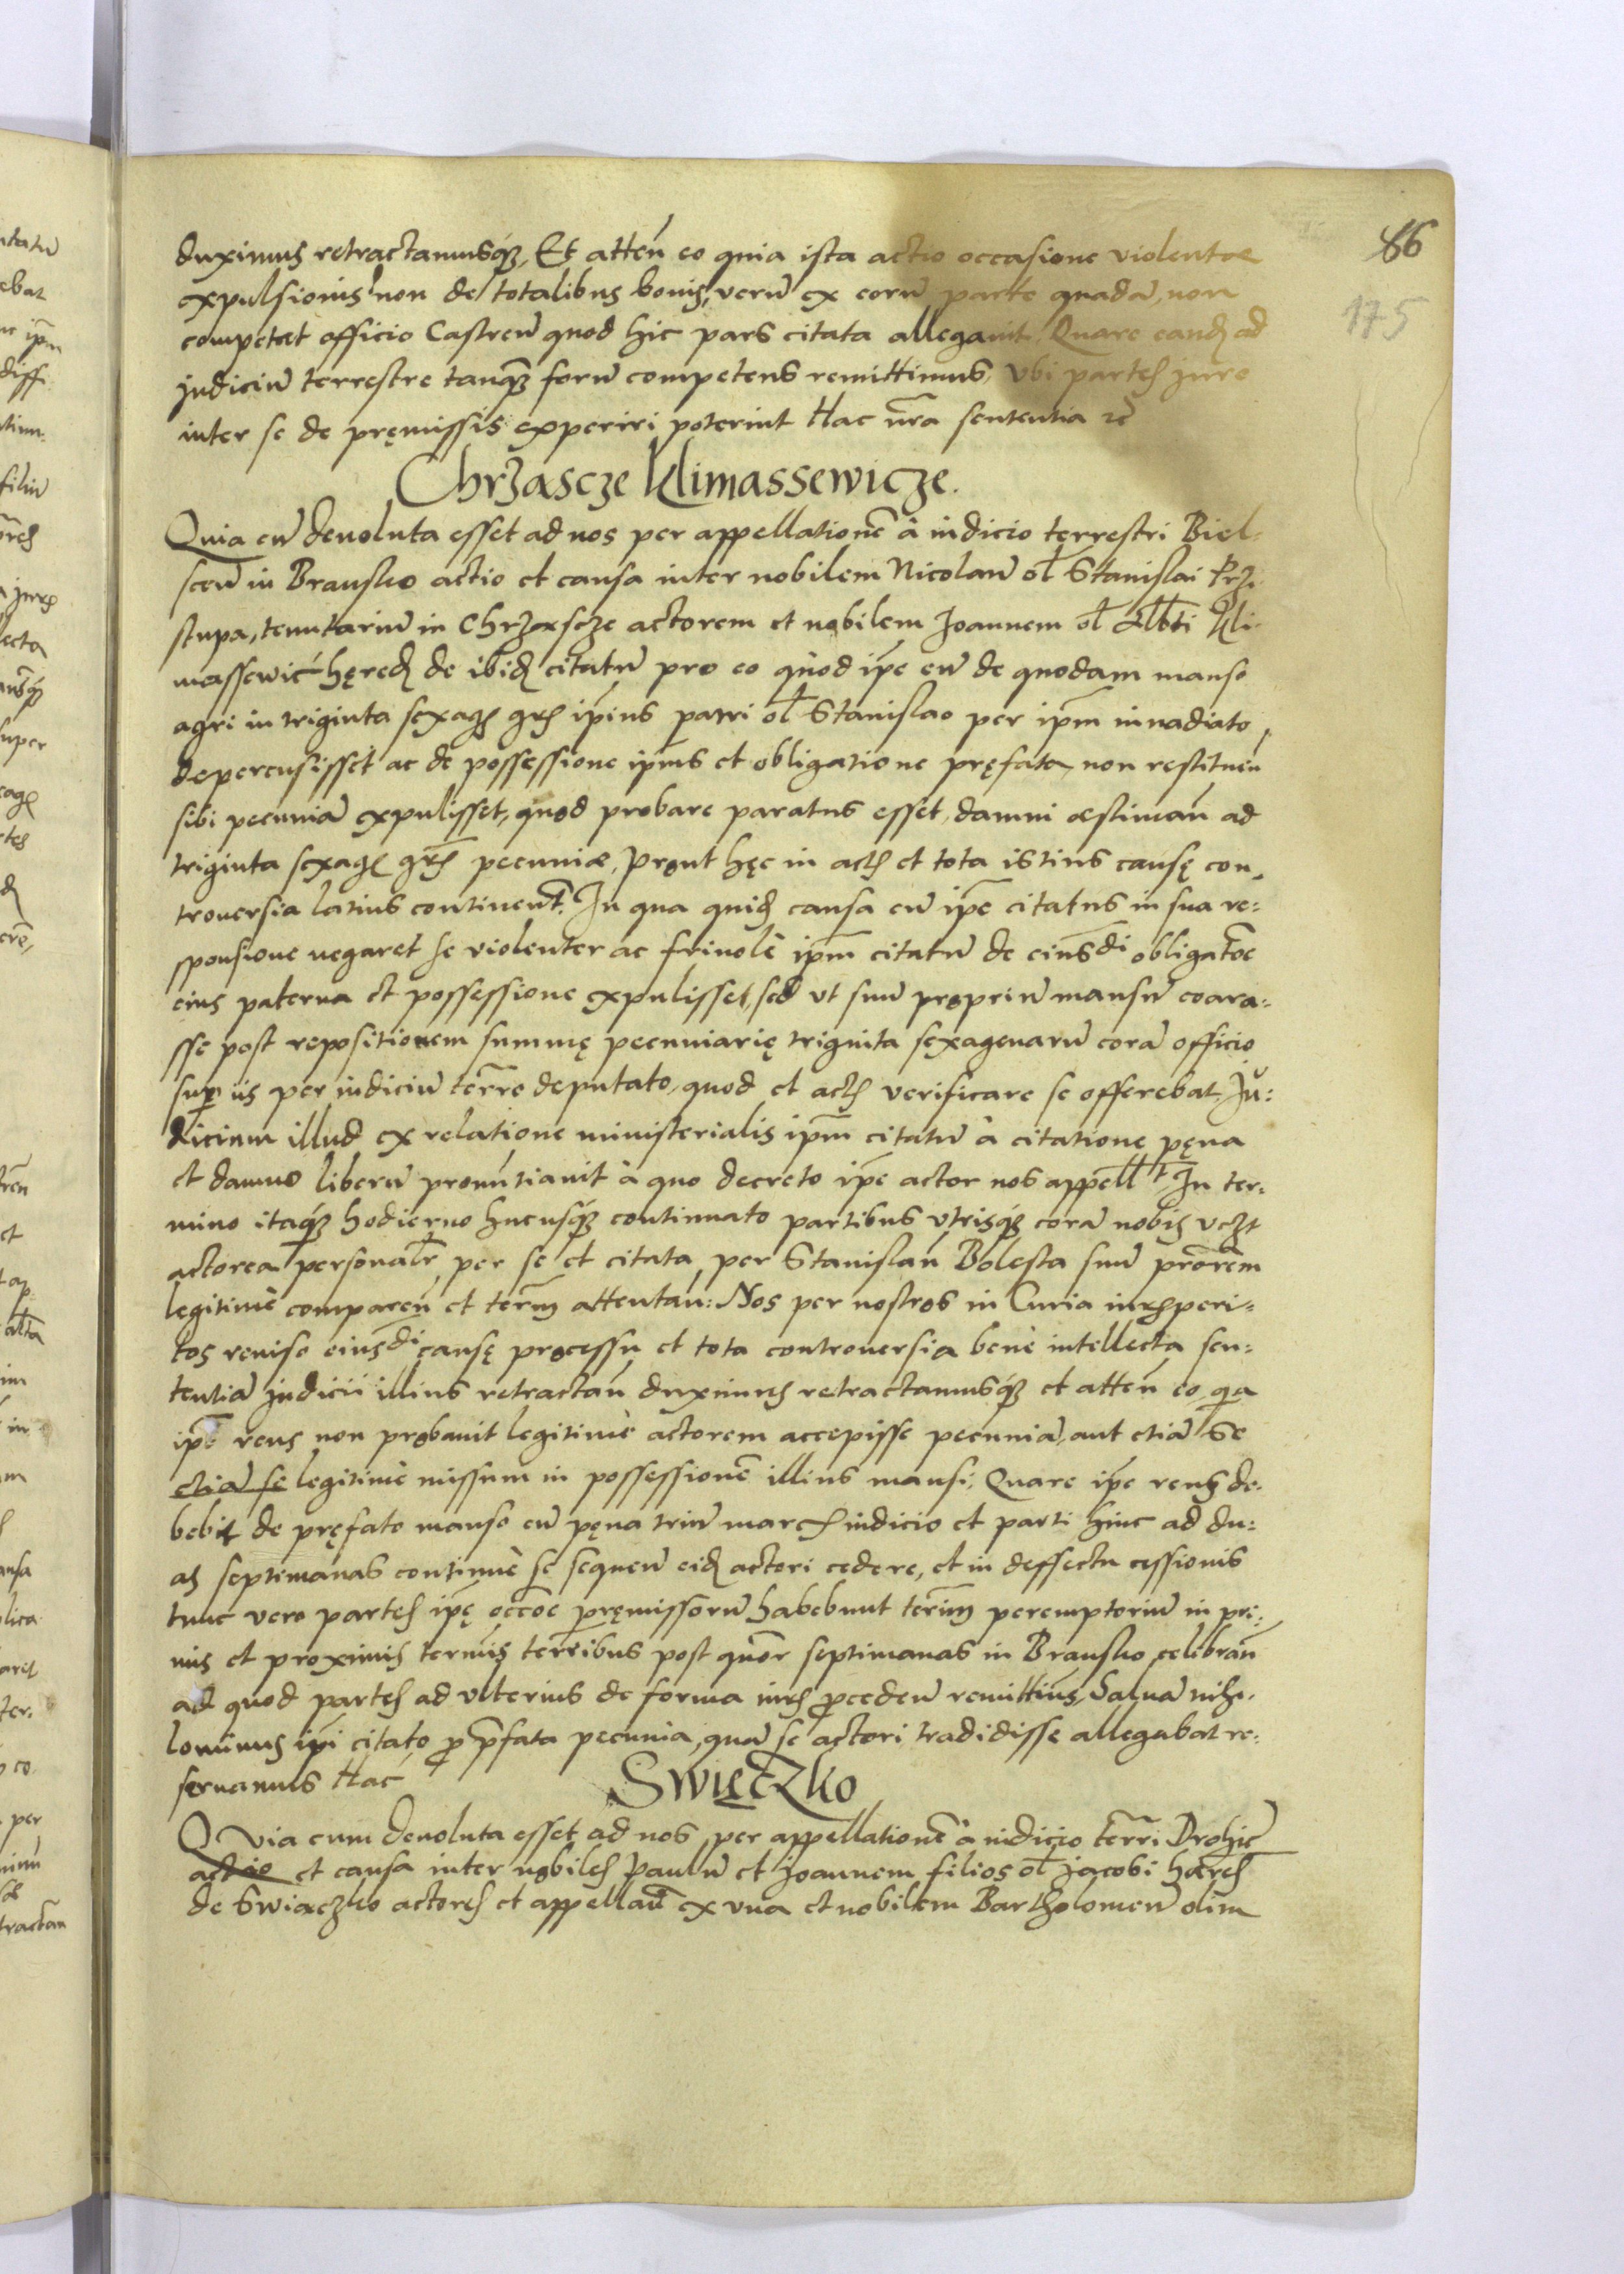 86
175
duximus retractamusq3, Et atten̄ eo quia ista actio occasione violentae
expulsionis non de totalibus bonis, verū ex eorū parte quadā, non
competat officio Castren̄ quod hic pars citata allegauit, Quare eand̄ ad
judiciū terrestre tanq̄ forū competens remittimus, Vbi partes jure
inter se de pręmissis experiri poterint Hac nr̄a sententia
Chrząscze Klimassewicze.
Quia cū deuoluta esset ad nos per appellationē à iudicio terrestri Biel-
scen̄ in Bransko actio et causa inter nobilem Nicolaū ol̄ Stanislai Przi
stupa, tenutariū in Chrząscze actorem et nobilem Joannem ol̄ Alb̄ti Kli-
massewic hęred̄ de ibid̄ citatū pro eo quod ip̄e eū de quodam manso
agri in triginta sexaḡ gr̄s ip̄ius patri ol̄ Stanislao per ip̄m inuadiato,
depercusisset ac de possessione ip̄ius et obligatione pręfata, non restituen̄
sibi pecuniā expulisset, quod probare paratus esset, damni æstiman̄ ad
triginta sexaḡ gr̄s pecuniæ, prout hęc in actis et tota istius causę con-
trouersia latius continent̄. In qua quid̄ causa cū ip̄e citatus in sua re:
sponsione negaret se violenter ac friuolè ip̄m citatū de eiusdi obligat̄oe
eius paterna et possessione expulisset, sed vt suū propriū mansū coara:
sse post repositionem summę pecuniarię triginta sexagenarū corā officio
sup̄ iis per iudiciū terr̄e deputato, quod et actis verificare se offerebat. Ju:
dicium illud ex relatione ministerialis ip̄m citatū à citatione pęna
et damno liberū pronuntiauit à quo decreto ip̄e actor nos appell̄t. In ter:
mino itaq3 hodierno hucusq3 continuato partibus vtrisq3 corā nobis vczt
actorea personal̄r per se et citata, per Stanislaū Bolesta suū pr̄orem
legitimè comparen̄ et term̄ attentan̄: Nos per nostros in Curia iurisperi-
tos reuiso eiusdi causę processu et tota controuersia benè intellecta sen:
tentiā judicii illius retractan̄ duximus retractamusq3 et atten̄ eo qa
ip̄e reus non probauit legitimè actorem accepisse pecuniā, aut etiā se
etiā se legitimè missum in possessionē illius mansi, Quare ip̄e reus de-
bebit de pręfato manso cū pęna triū marcis iudicio et parti hinc ad du:
as septimanas continuè se sequen̄ eid̄ actori cedere, et in deffectu cessionis
tunc vero partes ip̄ę occ̄oe pręmissorū habebunt term̄ peremptoriū in pri:
mis et proximis term̄is terr̄ibus post quōr septimanas in Bransko celibran̄
ad quod partes ad vlterius de forma iuris p̄ceden̄ remittim̄s, Saluā nihi-
lominus ip̄i citato p̄ p̄fata pecunia, quā se actori tradidisse allegabat re:
seruamus Hac
Swięczko
Quia cum deuoluta esset ad nos, per appellationē à iudicio terr̄i Drohic̄
actio et causa inter nobiles Paulū et Joannem filios ol̄ Jacobi hæredes
de Swiaczko actores et appellan̄ ex vna et nobilem Bartholomeū olim